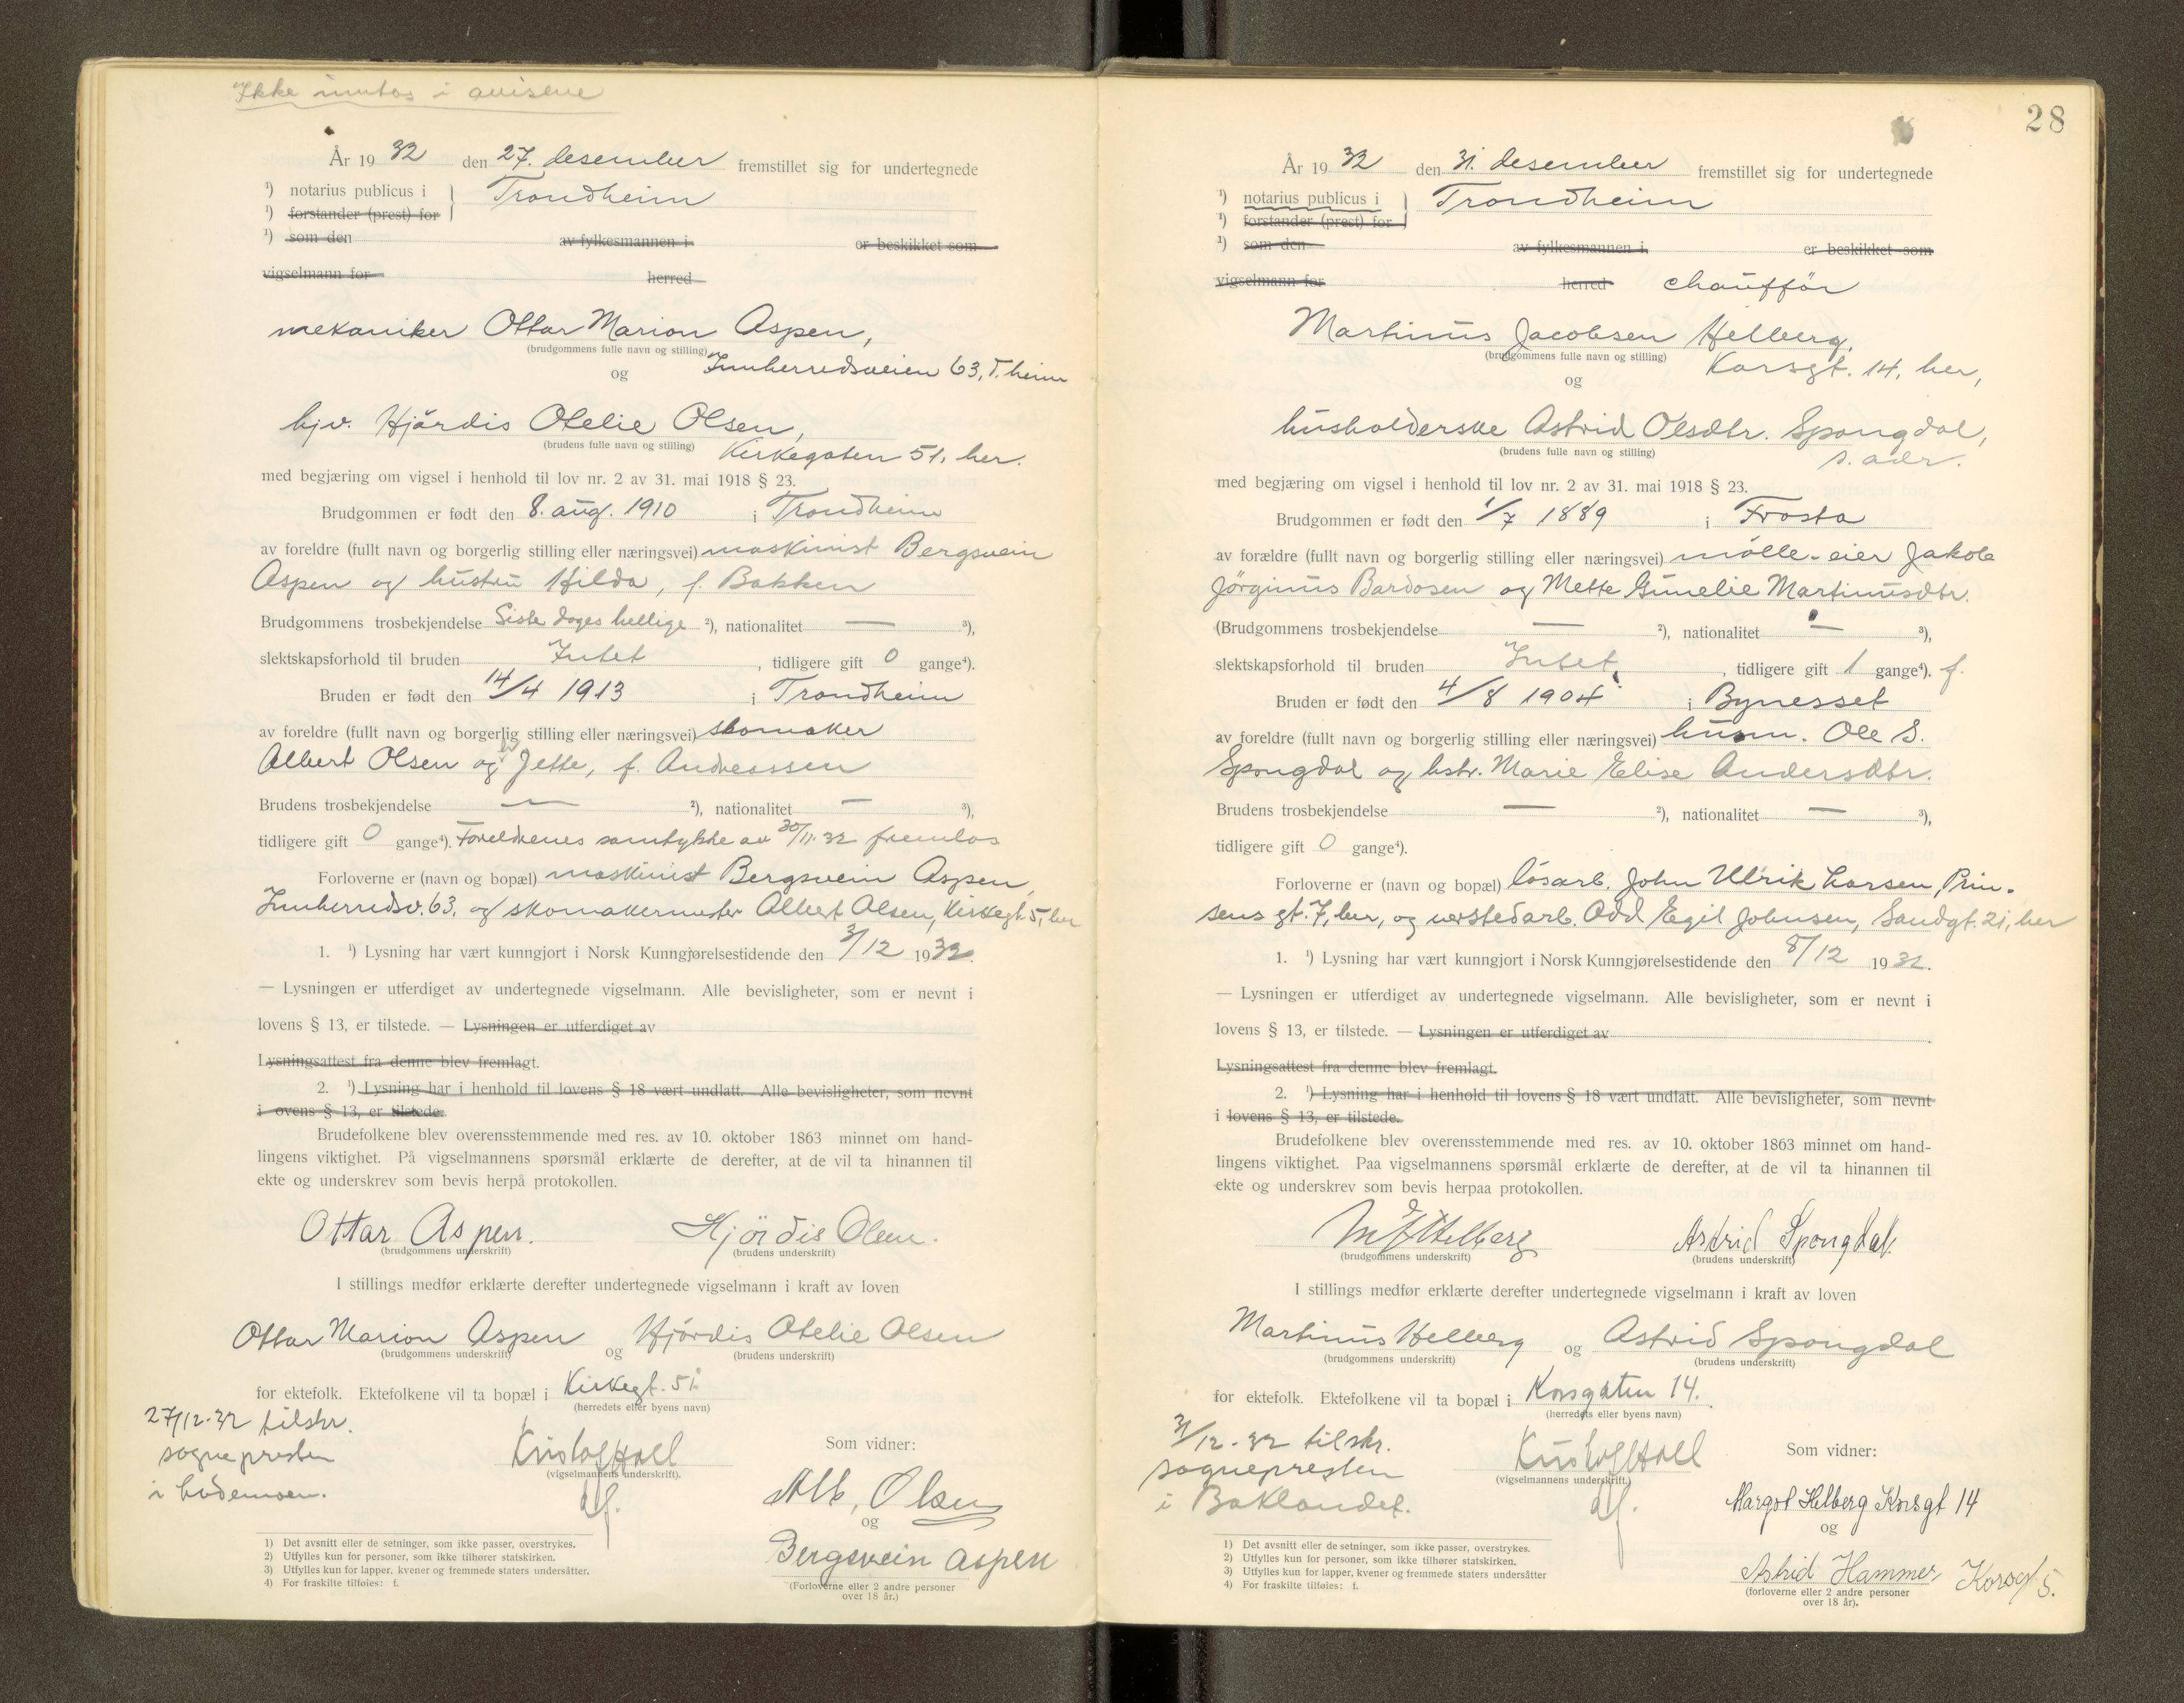 Ikke inntas i avisene
År 19 32 den 27. desember fremstillet sig for undertegnede
¹) notarius publicus i Trondheim
¹) forstander (prest) for
¹) som den av fylkesmannen i er beskikket som
vigselmann for herred
mekaniker Ottar Marion Aspen,
(brudgommens fulle navn og stilling)
og Innherredsveien 63, T.heim
hjv. Hjördis Otelie Olsen,
(brudens fulle navn og stilling) Kirkegaten 51, her.
med begjæring om vigsel i henhold til lov nr. 2 av 31. mai 1918 § 23.
Brudgommen er født den 8. aug. 1910 i Trondheim
av foreldre (fullt navn og borgerlig stilling eller næringsvei) maskinist Bergsvein
Aspen og hustru Hilda, f. Bakken
Brudgommens trosbekjendelse Siste dages hellige ²), nationalitet — ³),
slektskapsforhold til bruden Intet, tidligere gift 0 gange⁴).
Bruden er født den 14/4 1913 i Trondheim
av foreldre (fullt navn og borgerlig stilling eller næringsvei) skomaker
Albert Olsen og Jette, f. Andreassen
Brudens trosbekjendelse — ²), nationalitet — ³),
tidligere gift 0 gange⁴). Foreldrenes samtykke av 30/11.32 fremlas
Forloverne er (navn og bopæl) maskinist Bergsvein Aspen,
Innherredsv. 63, og skomakermester Albert Olsen, Kirkegt. 51, her
1. ¹) Lysning har vært kunngjort i Norsk Kunngjørelsestidende den 3/12 1932.
— Lysningen er utferdiget av undertegnede vigselmann. Alle bevisligheter, som er nevnt i
lovens § 13, er tilstede. — Lysningen er utferdiget av
Lysningsattest fra denne blev fremlagt.
2. ¹) Lysning har i henhold til lovens § 18 vært undlatt. Alle bevisligheter, som nevnt
i ovens § 13, er tilstede.
Brudefolkene blev overensstemmende med res. av 10. oktober 1863 minnet om hand-
lingens viktighet. På vigselmannens spørsmål erklærte de derefter, at de vil ta hinannen til
ekte og underskrev som bevis herpå protokollen.
Ottar Aspen. Hjördis Olsen.
(brudgommens underskrift) (brudens underskrift)
I stillings medfør erklærte derefter undertegnede vigselmann i kraft av loven
Ottar Marion Aspen og Hjördis Otelie Olsen
(brudgommens underskrift) (brudens underskrift)
for ektefolk. Ektefolkene vil ta bopæl i Kirkegt. 51.
(herredets eller byens navn)
27/12-32 tilskr.
sognepresten
i Lademoen.
(vigselmannens underskrift).
Som vidner:
Alb. Olsen
og
Bergsvein Aspen
(Forloverne eller 2 andre personer
over 18 år.)
1) Det avsnitt eller de setninger, som ikke passer, overstrykes.
2) Utfylles kun for personer, som ikke tilhører statskirken.
3) Utfylles kun for lapper, kvener og fremmede staters undersåtter.
4) For fraskilte tilføies: f.
28
År 19 32 den 31. desember fremstillet sig for undertegnede
¹) notarius publicus i Trondheim
¹) forstander (prest) for
¹) som den av fylkesmannen i er beskikket som
vigselmann for herred chaufför
Martinus Jacobsen Helberg,
(brudgommens fulle navn og stilling) Korsgt. 14, her,
og
husholderske Astrid Olsdtr. Spongdal,
(brudens fulle navn og stilling) s. adr.
med begjæring om vigsel i henhold til lov nr. 2 av 31. mai 1918 § 23.
Brudgommen er født den 1/7 1889 i Frosta
av forældre (fullt navn og borgerlig stilling eller næringsvei) mölle-eier Jakob
Jörginus Bardosen og Mette Gunelie Martinusdtr.
(Brudgommens trosbekjendelse — ²), nationalitet — ³),
slektskapsforhold til bruden Intet, tidligere gift 1 gange⁴). f.
Bruden er født den 4/8 1904 i Bynesset
av foreldre (fullt navn og borgerlig stilling eller næringsvei) husm. Ole S.
Spongdal og hstr. Marie Elise Andersdtr.
Brudens trosbekjendelse — ²), nationalitet — ³),
tidligere gift 0 gange⁴).
Forloverne er (navn og bopæl) lösarb. John Ulrik Larsen, Prin-
sens gt. 7, her, og verkstedarb. Odd Egil Johnsen, Sandgt. 21, her
1. ¹) Lysning har vært kunngjort i Norsk Kunngjørelsestidende den 8/12 1932.
— Lysningen er utferdiget av undertegnede vigselmann. Alle bevisligheter, som er nevnt i
lovens § 13, er tilstede. — Lysningen er utferdiget av
Lysningsattest fra denne blev fremlagt.
2. ¹) Lysning har i henhold til lovens § 18 vært undlatt. Alle bevisligheter, som nevnt
i lovens § 13, er tilstede.
Brudefolkene blev overensstemmende med res. av 10. oktober 1863 minnet om hand-
lingens viktighet. Paa vigselmannens spørsmål erklærte de derefter, at de vil ta hinannen til
ekte og underskrev som bevis herpaa protokollen.
M J Helberg Astrid Spongdal.
(brudgommens underskrift) (brudens underskrift)
I stillings medfør erklærte derefter undertegnede vigselmann i kraft av loven
Martinus Helberg og Astrid Spongdal
(brudgommens underskrift) (brudens underskrift)
for ektefolk. Ektefolkene vil ta bopæl i Korsgaten 14.
(herredets eller byens navn)
31/12-32 tilskr.
sognepresten
i Baklandet.
(vigselmannens underskrift.)
Som vidner:
Margot Helberg Korsgt 14
og
Astrid Hammer Korsgt 5.
(forloverne eller 2 andre personer
over 18 år).
1) Det avsnitt eller de setninger, som ikke passer, overstrykes.
2) Utfylles kun for personer, som ikke tilhører statskirken.
3) Utfylles kun for lapper, kvener og fremmede staters undersåtter
4) For fraskilte tilføies: f.